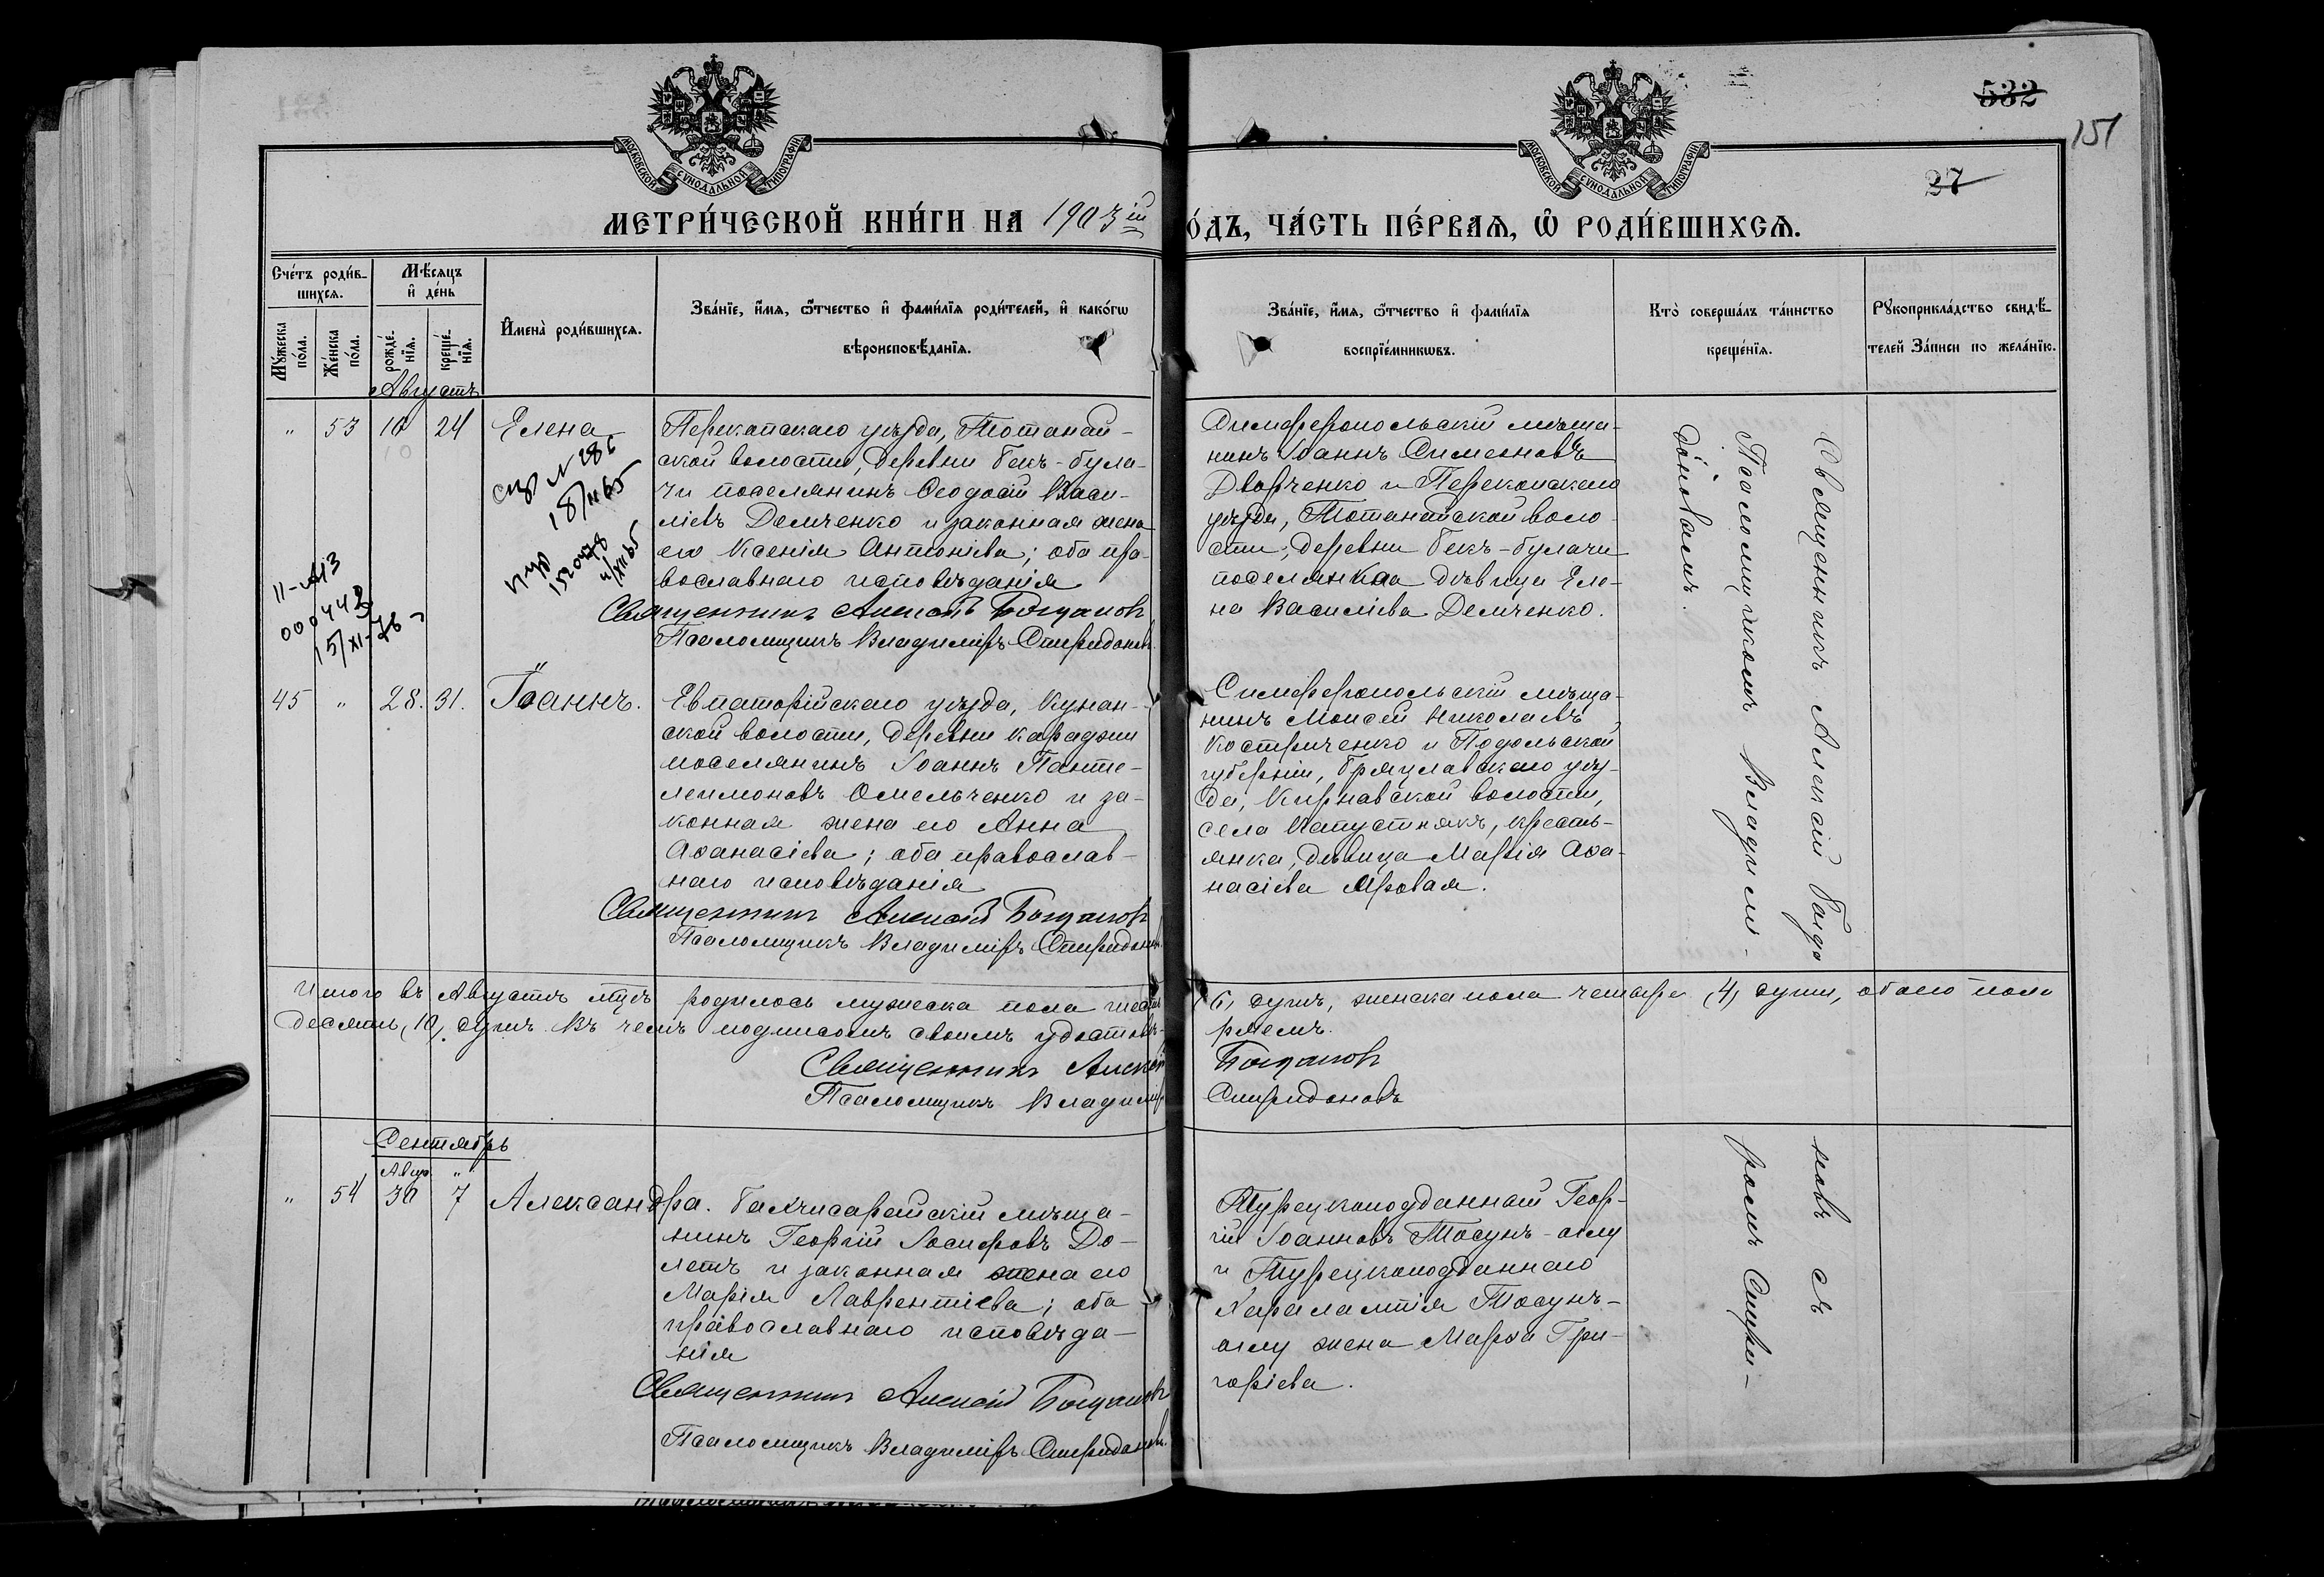 532
151
27
МОСКОВСКОЙ СѴНОДАЛЬНОЙ ТИПОГРАФІИ
МОСКОВСКОЙ СѴНОДАЛЬНОЙ ТИПОГРАФІИ
МЕТРИ́ЧЕСКОЙ КНИ́ГИ НА 1903 ій
О́ДЪ, ЧА́СТЬ ПЕ́РВАѦ, Ѽ РОДИ́ВШИХСѦ.
Сче́тъ роди́в-
шихсѧ.
Мꙋ́жеска
по́ла.
Же́нска
по́ла.
Мѣ́сѧцъ
и҆ де́нь
рожде́-
нїѧ.
креще́-
нїѧ.
И҆мена̀ роди́вшихсѧ.
Зва́нїе, и҆́мѧ, ѻ҆́тчество и҆ фами́лїѧ роди́телей, и҆ како́гѡ
вѣроисповѣ́данїѧ.
Зва́нїе, и҆́мѧ, ѻ҆́тчество и҆ фами́лїѧ
воспрїе́мникѡвъ.
Кто̀ соверша́лъ та́инство
креще́нїѧ.
Рꙋкоприкла́дство свидѣ́-
телей За́писи по жела́нїю.
Августъ
" 53 10 24 Елена
Перекопскаго уѣзда, Тотанай-
ской волости, деревни Бекъ-була-
чи поселянинъ Ѳеодосій Васи-
ліевъ Демченко и законная жена
его Ксенія Антоніева; оба пра-
вославнаго исповѣданія
Священникъ Алексій Богдановъ
Псаломщикъ Владиміръ Спиридоновъ
Симферопольскій мѣща-
нинъ Іоаннъ Симеоновъ
Дворченко и Перекопскаго
уѣзда, Тотанайской воло-
сти, деревни Бекъ-булачи
поселянка дѣвица Еле-
на Василіева Демченко.
Священникъ Алексій Богда
Псаломщикомъ Владимі-
доновымъ.
N 286
15/XI-
000442
45 " 28. 31. Іоаннъ.
Евпаторійскаго уѣзда, Кунан-
ской волости, деревни Караджи
поселянинъ Іоаннъ Панте-
леимоновъ Омельченко и за-
конная жена его Анна
Аѳанасіева; оба православ-
наго исповѣданія
Священникъ Алексій Богдановъ
Псаломщикъ Владиміръ Спиридоновъ
Симферопольскій мѣща-
нинъ Моисей Николаевъ
Костриченко и Подольской
губерніи, Брацлавскаго уѣз-
да, Кирнавской волости,
села Капустнякъ, кресть-
янка, дѣвица Марія Аѳа-
насіева Яровая.
Итого въ Августѣ мцѣ родилось мужеска пола шесть (6) душъ, женска пола четыре (4) души, обоего пола
десять (10) душъ. Въ чемъ подписомъ своимъ удостовѣ-
ряемъ.
Священникъ Алексій Богдановъ
Псаломщикъ Владиміръ Спиридоновъ
Сентябрь
Авгус. "
" 54 30 7 Александра.
Бахчисарайскій мѣща-
нинъ Георгій Іосифовъ До-
летъ и законная жена его
Марія Лаврентіева; оба
православнаго исповѣда-
нія
Священникъ Алексій Богдановъ
Псаломщикъ Владиміръ Спиридоновъ.
Турецкоподданный Геор-
гій Іоанновъ Тосунъ-оглу
и Турецкоподданнаго
Харалампія Тосунъ-
оглу жена Марѳа Гри-
горіева.
новъ съ
ромъ Спири-